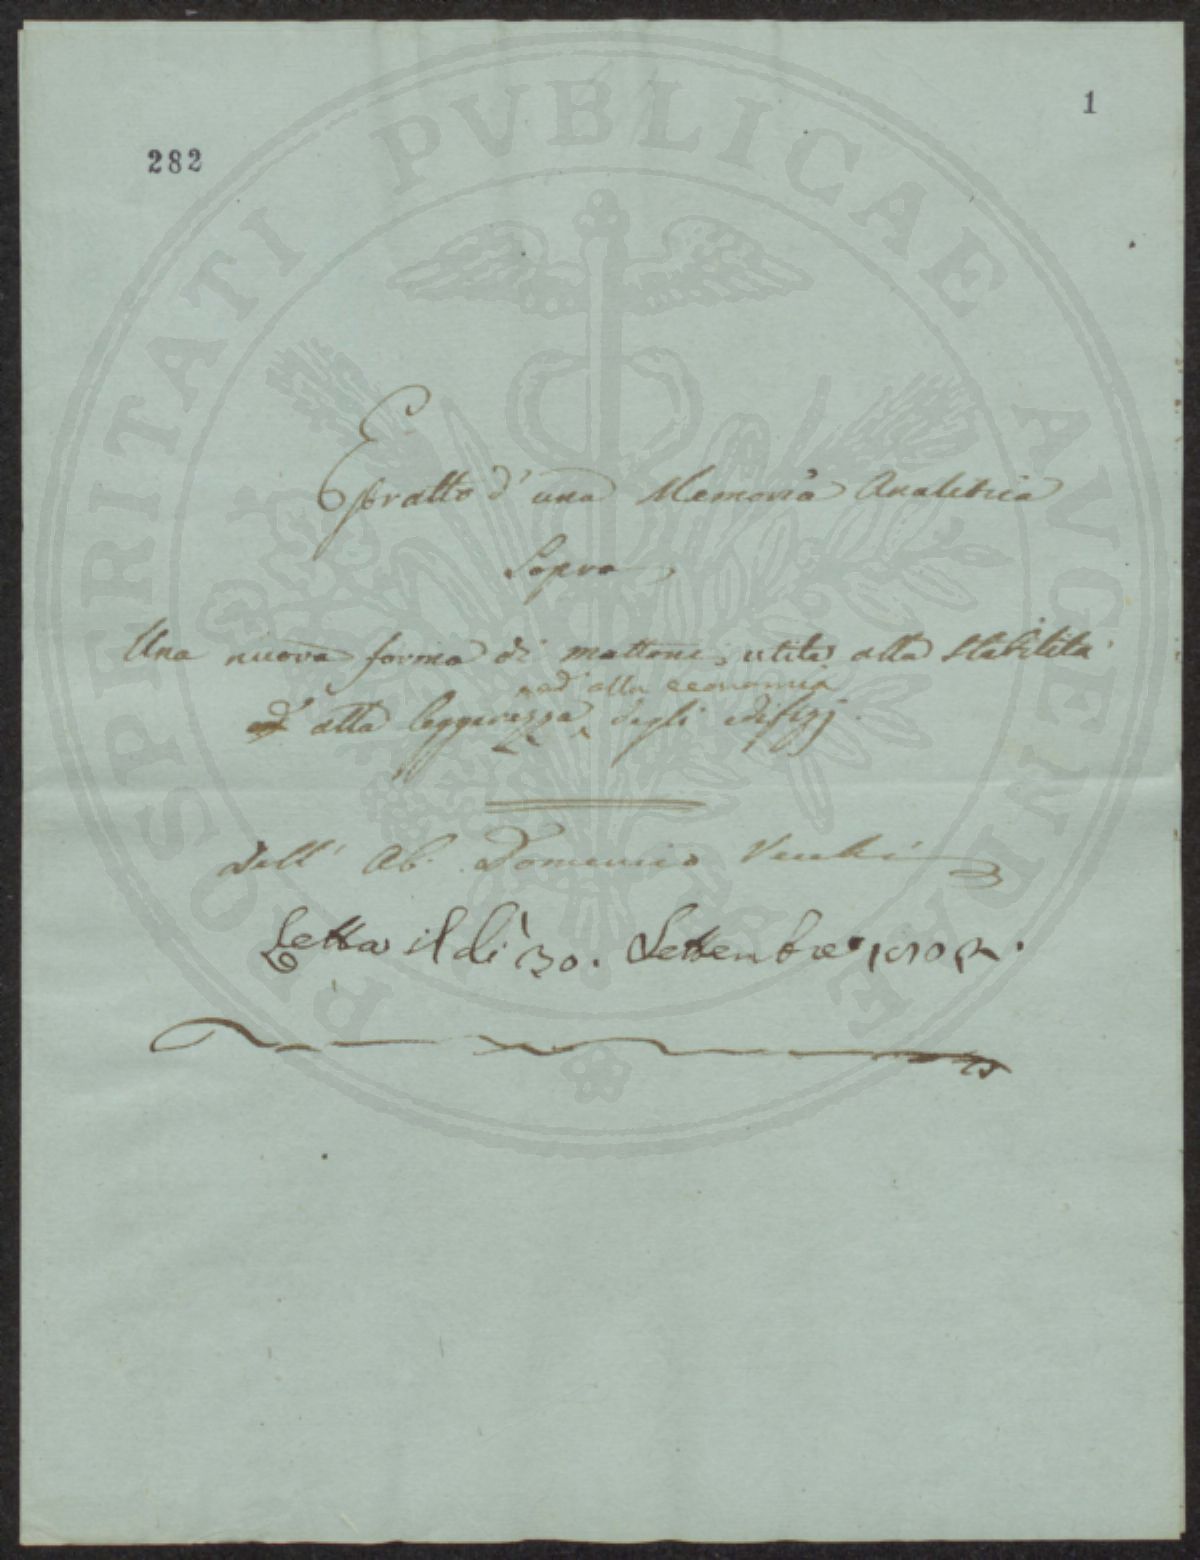 1
282
PROSPERITATI PVBLICAE AVGENDAE
Estratto d'una Memoria Analitica
Sopra
Una nuova forma di mattoni, utile alla stabilità
ed alla economia
alla leggerezza degli edifizj.
Dell' Ab. Domenico Vecchi
Letta il dì 30. Settembre